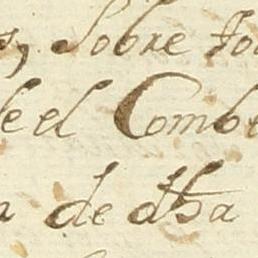 s, Sobre to
le el Comb
a de dha